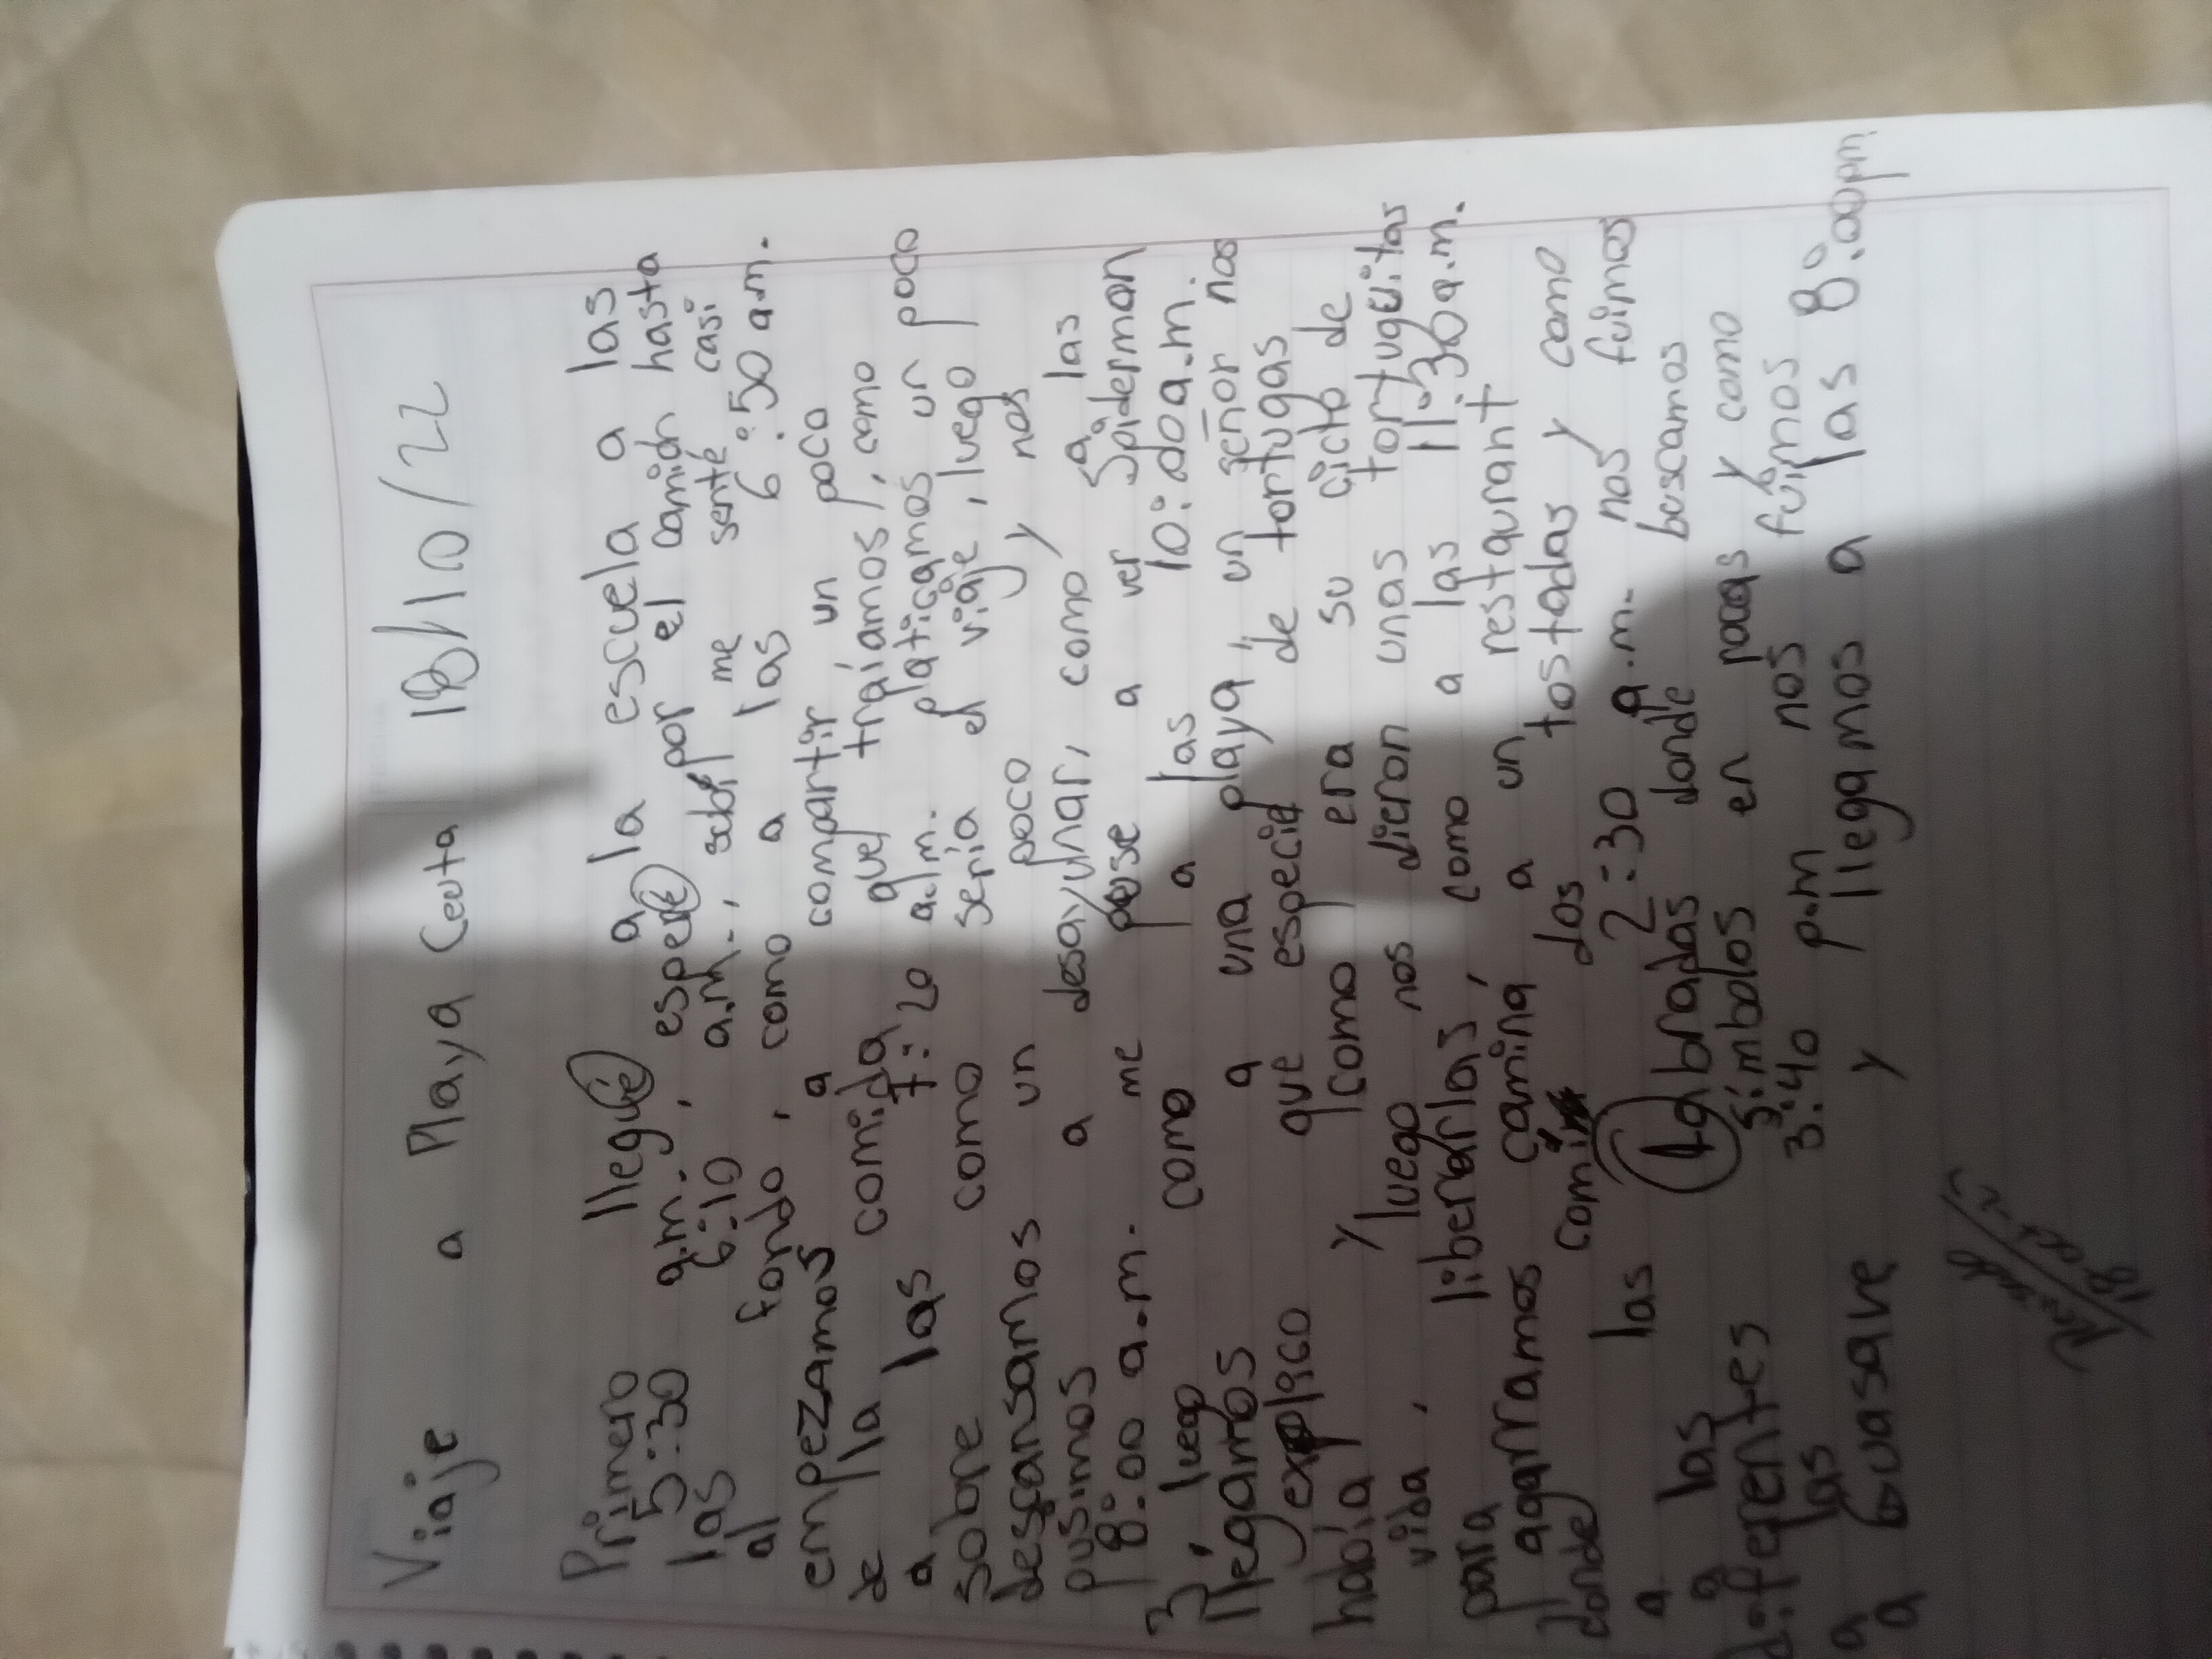 Viaje a Playa Ceuta 18/10/22
Primero llegué a la escuela a las
5:30 a.m., esperé por el camión hasta
las 6:10 a.m., subí me senté casi
al fondo, como a las 6:50 a.m.
empezamos a compartir un poco
de la comida que traíamos, como
a las 7:20 a.m. platicamos un poco
sobre como sería el viaje, luego
descansamos un poco y nos
pusimos a desayunar, como a las
8:00 a.m. me puse a ver Spiderman
3, luego como a las 10:00 a.m.
llegamos a una playa, un señor nos
explico que especie de tortugas
había como era su ciclo de
vida, y luego nos dieron unas tortuguitas
para liberarlas, como a las 11:30 a.m.
agarramos camino a un restaurant
donde comí dos tostadas y como
a las 2:30 a.m. nos fuimos
a las labradas donde buscamos
diferentes símbolos en rocas y como
a las 3:40 p.m nos fuimos
a Guasave y llegamos a las 8:00pm